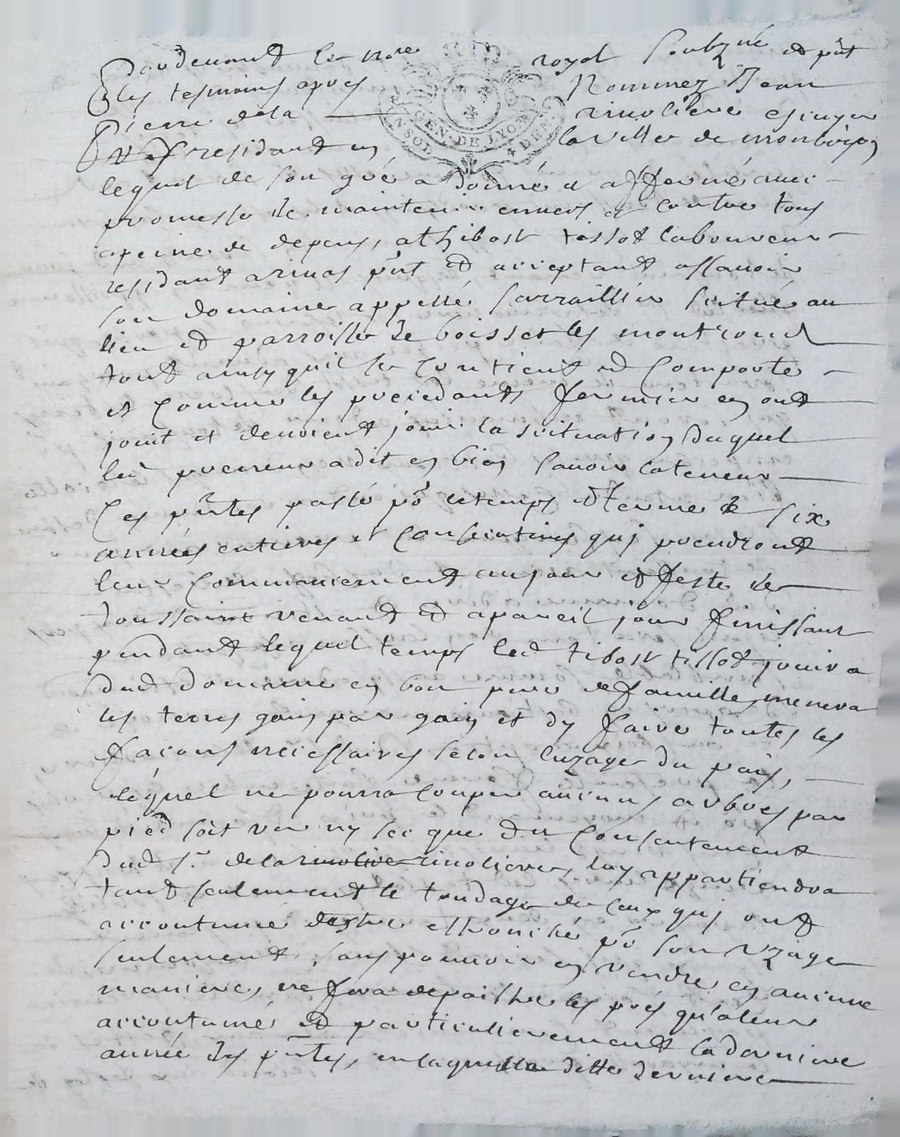 Pardevant le no.re royal soubzné et pñt
les tesmoins apres nommez Jean
Pierre de la rinoliere escuyer
GEN. DE LYON
SOL DEN.
residant en la ville de monbrison
lequel de son gré a donné et affermé avec
promesse de maintenir envers et contre tous
a peine de depens, a thibost tissot laboureur
residant a rivas pñt et acceptant assavoir
son domaine appellé sarraillier scitué au
lieu et parroisse de boisset les montrond
tout ainsy quil se contient et comporte
et comme les precedants fermier en ont
jouit et devoient jouir la scituation duquel
led preneur a dit en bien savoir la teneur
Ces pñtes passé põ le temps et terme de six
années entieres et consecutives qui prendront
leur commancement au jour et feste de
toussaint venant et a pareil jour finissant
pendant lequel temps led tibost tissot jouira
dud domaine en bon pere de famille, menera
les terres gain par gain et dy faire toutes les
facons necessaires selon luzage du païs,
lequel ne pourra couper aucuns arbres par
pied soit ver ny sec que du consentement
dud sr. de la rinoliere, luy appartiendra
tant seulement le tondage de ceux qui ont
accoutumé destre esbranché põ son uzage
seulement, sans pouvoir en vendre en aucune
maniere, ne fera depaistre les pres qua leur
accoutumé et particulierement la derniere
année des pñtes, en laquelle ditte derniere